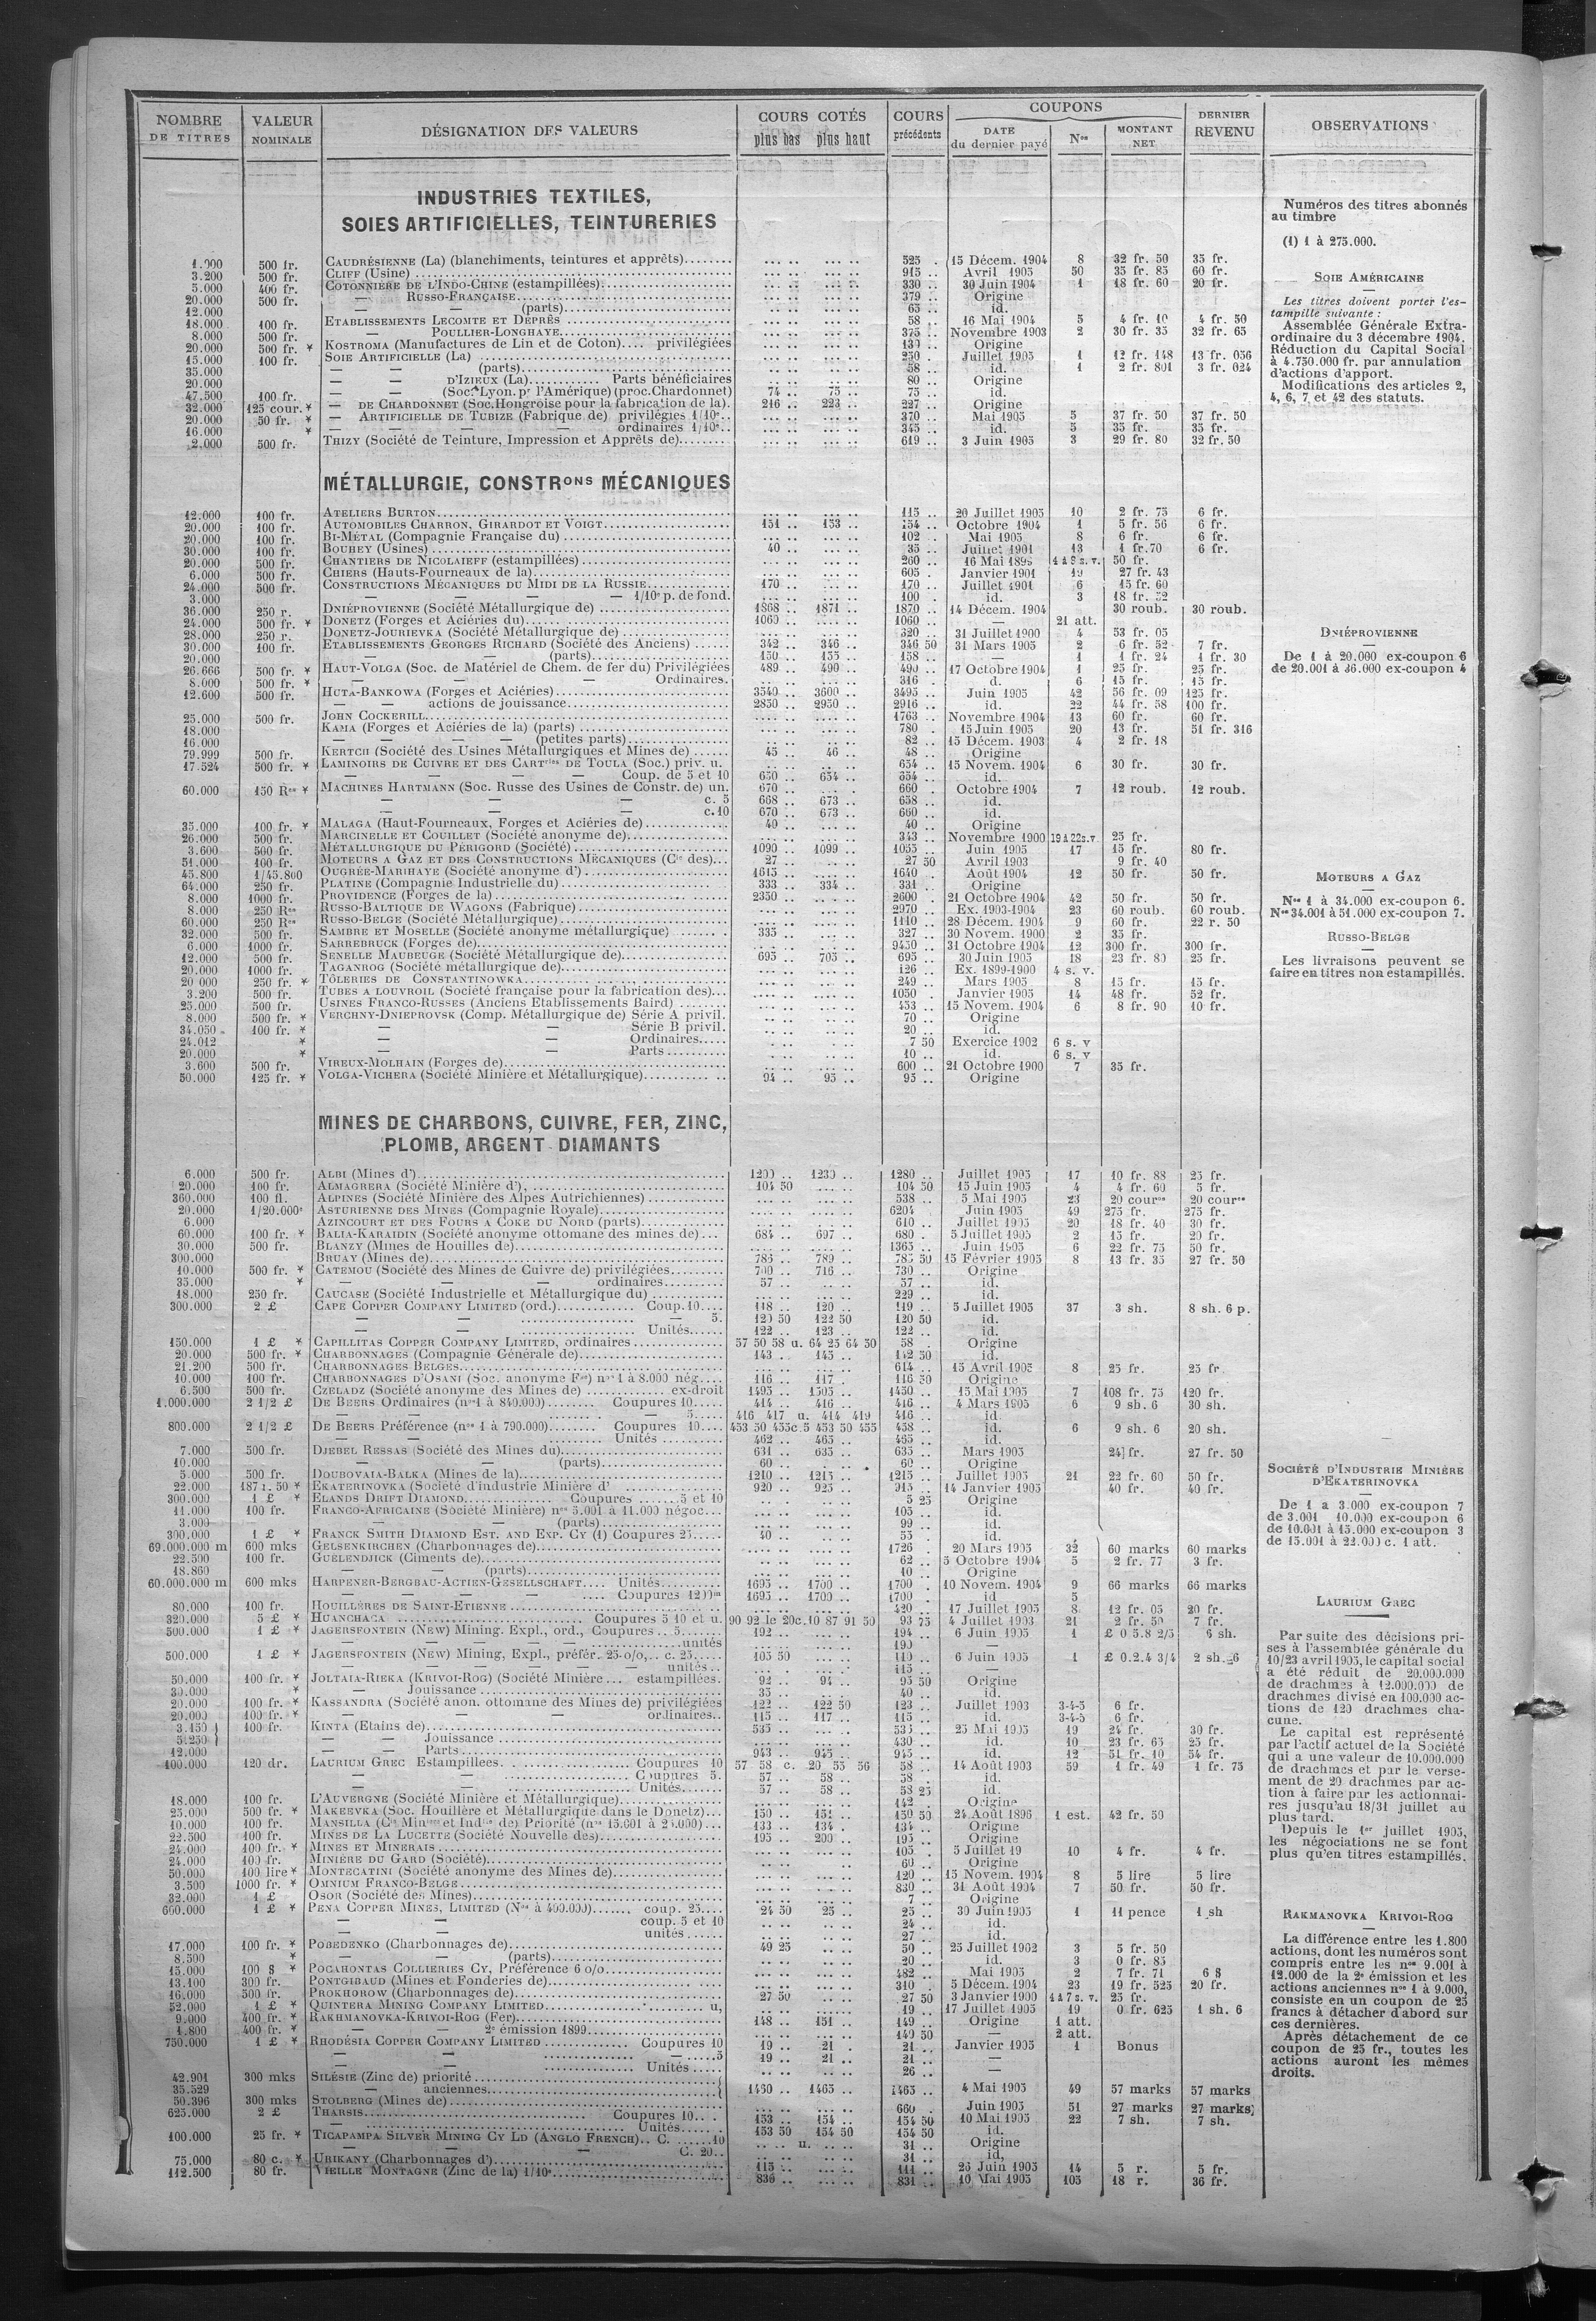 NOMBRE DE TITRES | VALEUR NOMINALE | DÉSIGNATION DES VALEURS | COURS COTÉS plus bas plus haut | COURS précédents | COUPONS DATE du dernier payé | Nos | MONTANT NET | DERNIER REVENU | OBSERVATIONS
INDUSTRIES TEXTILES,
SOIES ARTIFICIELLES, TEINTURERIES
1.000 500 fr. CAUDRÉSIENNE (La) (blanchiments, teintures et apprêts) 525 15 Décem. 1904 8 32 fr. 50 35 fr.
3.200 500 fr. CLIFF (Usine) 915 Avril 1905 50 35 fr. 85 60 fr.
5.000 400 fr. COTONNIÈRE DE L'INDO-CHINE (estampillées) 330 30 Juin 1904 1 18 fr. 60 20 fr.
20.000 500 fr. — RUSSO-FRANÇAISE 379 Origine
12.000 — — (parts) 65 id.
18.000 100 fr. ETABLISSEMENTS LECOMTE ET DEPRÊS 58 16 Mai 1904 5 4 fr. 10 4 fr. 50
8.000 500 fr. — POULLIER-LONGHAYE 375 Novembre 1903 2 30 fr. 35 32 fr. 65
20.000 500 fr. * KOSTROMA (Manufactures de Lin et de Coton) privilégiées Origine
15.000 100 fr. SOIE ARTIFICIELLE (La) 250 Juillet 1905 1 12 fr. 148 13 fr. 036
35.000 — — (parts) 58 id. 1 2 fr. 801 3 fr. 024
20.000 — D'IZIEUX (La) Parts bénéficiaires 80 Origine
47.500 100 fr. — — (Soc. Lyon. pr l'Amérique) (proc. Chardonnet) 74 75 75 id.
32.000 125 cour. * — DE CHARDONNET (Soc. Hongroise pour la fabrication de la) 216 223 227 Origine
20.000 50 fr. * — ARTIFICIELLE DE TUBIZE (Fabrique de) privilégiés 1/10e 370 Mai 1905 5 37 fr. 50 37 fr. 50
16.000 * — — — ordinaires 1/10e 345 id. 5 35 fr. 35 fr.
2.000 500 fr. THIZY (Société de Teinture, Impression et Apprêts de) 619 3 Juin 1905 3 29 fr. 80 32 fr. 50
MÉTALLURGIE, CONSTRons MÉCANIQUES
12.000 100 fr. ATELIERS BURTON 115 20 Juillet 1905 10 2 fr. 75 6 fr.
20.000 100 fr. AUTOMOBILES CHARRON, GIRARDOT ET VOIGT 151 153 154 Octobre 1904 1 5 fr. 56 6 fr.
20.000 100 fr. BI-MÉTAL (Compagnie Française du) 102 Mai 1905 8 6 fr. 6 fr.
30.000 100 fr. BOUHEY (Usines) 40 35 Juillet 1901 13 1 fr. 70 6 fr.
20.000 500 fr. CHANTIERS DE NICOLAIEFF (estampillées) 260 16 Mai 50 fr.
6.000 500 fr. CHIERS (Hauts-Fourneaux de la) 605 Janvier 1901 19 27 fr. 43
24.000 500 fr. CONSTRUCTIONS MÉCANIQUES DU MIDI DE LA RUSSIE 170 170 Juillet 1901 6 15 fr. 60
3.000 — — — 1/10e p. de fond. 100 id. 3
36.000 250 r. DNIÉPROVIENNE (Société Métallurgique de) 1868 1871 1870 14 Décem. 1904 30 roub. 30 roub.
24.000 500 fr. * DONETZ (Forges et Aciéries du) 1060 1060 — 21 att.
28.000 250 r. DONETZ-JOURIEVKA (Société Métallurgique de) 320 31 Juillet 1900 4 53 fr. 05
30.000 100 fr. ETABLISSEMENTS GEORGES RICHARD (Société des Anciens) 342 346 346 50 31 Mars 1905 2 6 fr. 52 7 fr.
20.000 — — (parts) 150 155 158 — 1 1 fr. 24 1 fr. 30
26.666 500 fr. * HAUT-VOLGA (Soc. de Matériel de Chem. de fer du) Privilégiées 489 490 490 17 Octobre 1904 1 25 fr. 25 fr.
8.000 500 fr. * — — — Ordinaires. 316 d. 6 15 fr. 15 fr.
12.600 500 fr. HUTA-BANKOWA (Forges et Aciéries) 3540 3600 3495 Juin 1905 42 56 fr. 09 125 fr.
— — actions de jouissance 2850 2950 2916 id. 22 44 fr. 58 100 fr.
25.000 500 fr. JOHN COCKERILL 1763 Novembre 1904 13 60 fr. 60 fr.
18.000 KAMA (Forges et Aciéries de la) (parts) 780 15 Juin 1905 20 13 fr. 51 fr. 316
16.000 — — — (petites parts) 82 15 Décem. 1903 4 2 fr. 18
79.999 500 fr. KERTCH (Société des Usines Métallurgiques et Mines de) 45 46 48 Origine
17.524 500 fr. * LAMINOIRS DE CUIVRE ET DES CARTries DE TOULA (Soc.) priv. u. 654 15 Novem. 1904 6 30 fr. 30 fr.
— — — Coup. de 5 et 10 650 654 654 id.
60.000 150 Rres * MACHINES HARTMANN (Soc. Russe des Usines de Constr. de) un. 670 660 Octobre 1904 7 12 roub. 12 roub.
— — — c. 5 668 673 658 id.
— — — c. 10 670 673 660 id.
35.000 100 fr. * MALAGA (Haut-Fourneaux, Forges et Aciéries de) 40 40 Origine
26.000 500 fr. MARCINELLE ET COUILLET (Société anonyme de) 343 Novembre 1900 19 à 22 s.v. 25 fr.
3.600 500 fr. MÉTALLURGIQUE DU PÉRIGORD (Société) 1090 1099 1055 Juin 1905 17 15 fr. 80 fr.
51.000 100 fr. MOTEURS A GAZ ET DES CONSTRUCTIONS MÉCANIQUES (Cie des) 27 27 50 Avril 1903 9 fr. 40
45.800 1/45.800 OUGRÉE-MARIHAYE (Société anonyme d') 1615 1640 Août 1904 12 50 fr. 50 fr.
64.000 250 fr. PLATINE (Compagnie Industrielle du) 333 334 331 Origine
8.000 1000 fr. PROVIDENCE (Forges de la) 2350 2600 21 Octobre 1904 42 50 fr. 50 fr.
8.000 250 Rres RUSSO-BALTIQUE DE WAGONS (Fabrique) 2970 Ex. 1903-1904 23 60 roub. 60 roub.
60.000 250 Rres RUSSO-BELGE (Société Métallurgique) 1110 28 Décem. 1904 9 60 fr. 22 r. 50
32.000 500 fr. SAMBRE ET MOSELLE (Société anonyme métallurgique) 335 327 30 Novem. 1900 2 35 fr.
6.000 1000 fr. SARREBRUCK (Forges de) 9450 31 Octobre 1904 12 300 fr. 300 fr.
12.000 500 fr. SENELLE MAUBEUGE (Société Métallurgique de) 695 705 695 30 Juin 1905 18 23 fr. 80 25 fr.
20.000 1000 fr. TAGANROG (Société métallurgique de) 126 Ex. 1899-1900 4 s. v.
20 000 250 fr. * TÔLERIES DE CONSTANTINOWKA 249 Mars 1905 8 15 fr. 15 fr.
3.200 500 fr. TUBES A LOUVROIL (Société française pour la fabrication des) 1050 Janvier 1905 14 48 fr. 52 fr.
25.000 500 fr. USINES FRANCO-RUSSES (Anciens Etablissements Baird) 453 15 Novem. 1904 6 8 fr. 90 10 fr.
8.000 500 fr. * VERCHNY-DNIEPROVSK (Comp. Métallurgique de) Série A privil. 70 Origine
34.050 100 fr. * — — Série B privil. 20 id.
24.012 * — — Ordinaires 7 50 Exercice 1902 6 s. v
20.000 * — — Parts 10 id. 6 s. v
3.600 500 fr. VIREUX-MOLHAIN (Forges de) 600 21 Octobre 1900 7 35 fr.
50.000 125 fr. * VOLGA-VICHERA (Société Minière et Métallurgique) 94 95 95 Origine
MINES DE CHARBONS, CUIVRE, FER, ZINC,
PLOMB, ARGENT DIAMANTS
6.000 500 fr. ALBI (Mines d') 1200 1230 1280 Juillet 1905 17 10 fr. 88 25 fr.
20.000 100 fr. ALMAGRERA (Société Minière d') 104 50 104 50 15 Juin 1905 4 4 fr. 60 5 fr.
360.000 100 fl. ALPINES (Société Minière des Alpes Autrichiennes) 538 5 Mai 1905 23 20 coures 20 coures
20.000 1/20.000e ASTURIENNE DES MINES (Compagnie Royale) 6204 Juin 1905 49 275 fr. 275 fr.
6.000 AZINCOURT ET DES FOURS A COKE DU NORD (parts) 610 Juillet 1905 20 18 fr. 40 30 fr.
60.000 100 fr. * BALIA-KARAIDIN (Société anonyme ottomane des mines de) 684 697 680 5 Juillet 1905 2 15 fr. 20 fr.
30.000 500 fr. BLANZY (Mines de Houilles de) 1365 Juin 1905 6 22 fr. 75 50 fr.
300.000 BRUAY (Mines de) 786 789 785 50 15 Février 1905 8 13 fr. 35 27 fr. 50
10.000 500 fr. * CATEMOU (Société des Mines de Cuivre de) privilégiées 700 716 730 Origine
35.000 * — — — ordinaires 57 57 id.
18.000 250 fr. CAUCASE (Société Industrielle et Métallurgique du) 229 id.
300.000 2 £ CAPE COPPER COMPANY LIMITED (ord.) Coup. 10 118 120 119 5 Juillet 1905 37 3 sh. 8 sh. 6 p.
— — — 5. 120 50 122 50 120 50 id.
— — Unités 122 123 122 id.
150.000 1 £ * CAPILLITAS COPPER COMPANY LIMITED, ordinaires 57 50 58 u. 64 25 64 50 58 Origine
20.000 500 fr. * CHARBONNAGES (Compagnie Générale de) 143 145 142 50 id.
21.200 500 fr. CHARBONNAGES BELGES 614 15 Avril 1905 8 25 fr. 25 fr.
10.000 100 fr. CHARBONNAGES D'OSANI (Soc. anonyme Fse) nos 1 à 8.000 nég. 116 117 116 50 Origine
6.500 500 fr. CZELADZ (Société anonyme des Mines de) ex-droit 1495 1505 1450 15 Mai 1905 7 108 fr. 75 120 fr.
1.000.000 2 1/2 £ DE BEERS Ordinaires (nos 1 à 840.000) Coupures 10 414 416 416 4 Mars 1905 6 9 sh. 6 30 sh.
— — — 5 416 417 u. 414 419 416 id.
800.000 2 1/2 £ DE BEERS Préférence (nos 1 à 790.000) Coupures 10 453 50 455 c. 5 453 50 455 458 id. 6 9 sh. 6 20 sh.
— — Unités 462 465 465 id.
7.000 500 fr. DJEBEL RESSAS (Société des Mines du) 631 635 635 Mars 1905 24 fr. 27 fr. 50
10.000 — — (parts) 60 60 Origine
5.000 500 fr. DOUBOVAIA-BALKA (Mines de la) 1210 1215 1215 Juillet 1905 21 22 fr. 60 50 fr.
22.000 187 r. 50 * EKATERINOVKA (Société d'industrie Minière d' 920 925 915 14 Janvier 1905 40 fr. 40 fr.
300.000 1 £ * ELANDS DRIFT DIAMOND Coupures 5 et 10 5 25 Origine
11.000 100 fr. FRANCO-AFRICAINE (Société Minière) nos 3.001 à 11.000 négoc. 105 id.
3.000 — — (parts) 99 id.
300.000 1 £ * FRANCK SMITH DIAMOND EST. AND EXP. CY (1) Coupures 25 40 55 id.
69.000.000 m 600 mks GELSENKIRCHEN (Charbonnages de) 1726 20 Mars 1905 32 60 marks 60 marks
22.500 100 fr. GUELENDJICK (Ciments de) 62 5 Octobre 1904 5 2 fr. 77 3 fr.
18.860 — — (parts) 10 Origine
60.000.000 m 600 mks HARPENER-BERGBAU-ACTIEN-GESELLSCHAFT Unités 1695 1700 1700 10 Novem. 1904 9 66 marks 66 marks
Coupures 1200m 1695 1700 1700 id 5
80.000 100 fr. HOUILLÈRES DE SAINT-ETIENNE 420 17 Juillet 1905 8 12 fr. 05 20 fr.
320.000 5 £ * HUANCHACA Coupures 5 10 et u. 90 92 le 20c. 10 87 91 50 93 75 4 Juillet 1903 21 2 fr. 50 7 fr.
500.000 1 £ * JAGERSFONTEIN (NEW) Mining. Expl., ord., Coupures 5 192 194 6 Juin 1905 1 £ 0 5.8 2/5 6 sh.
— — — unités 190 —
500.000 1 £ * JAGERSFONTEIN (NEW) Mining, Expl., préfér. 25 o/o, c. 25 105 50 110 6 Juin 1905 1 £ 0.2.4 3/4 2 sh. 6
— — — unités 115 —
50.000 100 fr. * JOLTAIA-RIEKA (KRIVOI-ROG) (Société Minière estampillées. 92 94 95 50 Origine
30.000 * — Jouissance 35 40 id.
20.000 100 fr. * KASSANDRA (Société anon. ottomane des Mines de) privilégiées 122 122 50 123 Juillet 1903 3-4-5 6 fr.
20.000 100 fr. * — — — ordinaires 115 117 115 id. 3-4-5 6 fr.
3.150 100 fr. KINTA (Etains de) 535 535 25 Mai 1905 19 24 fr. 30 fr.
5.250 — — Jouissance 430 id. 10 23 fr. 65 25 fr.
12.000 — — Parts 943 945 945 id. 12 51 fr. 10 54 fr.
100.000 120 dr. LAURIUM GREC Estampillees Coupures 10 57 58 c. 20 55 56 58 14 Août 1903 59 1 fr. 49 1 fr. 75
— — Coupures 5. 57 58 58 id.
— — Unités 57 58 58 25 id.
18.000 100 fr. L'AUVERGNE (Société Minière et Métallurgique) 142 Origine
25.000 500 fr. * MAKEEVKA (Soc. Houillère et Métallurgique dans le Donetz) 150 151 150 50 24 Août 1896 1 est. 42 fr. 50
10.000 100 fr. MANSILLA (Cie Minres et Indlle de) Priorité (nos 15.001 à 25.000) 133 134 134 Origine
22.500 100 fr. MINES DE LA LUCETTE (Société Nouvelle des) 195 200 195 Origine
24.000 100 fr. * MINES ET MINERAIS 105 5 Juillet 19 10 4 fr. 4 fr.
24.000 100 fr. MINIÈRE DU GARD (Société) 60 Origine
50.000 100 lire * MONTECATINI (Société anonyme des Mines de) 120 15 Novem. 1904 8 5 lire 5 lire
3.500 1000 fr. * OMNIUM FRANCO-BELGE 830 31 Août 1904 7 50 fr. 50 fr.
32.000 1 £ OSOR (Société des Mines) 7 Origine
600.000 1 £ * PENA COPPER MINES, LIMITED (Nos à 400.000) coup. 25 24 50 25 25 30 Juin 1905 1 11 pence 1 sh
— — coup. 5 et 10 24 id.
— — unités 27 id.
17.000 100 fr. * POBEDENKO (Charbonnages de) 49 25 50 25 Juillet 1902 3 5 fr. 50
8.500 * — — (parts) 20 id. 3 0 fr. 85
15.000 100 $ * POCAHONTAS COLLIERIES CY, Préférence 6 o/o 482 Mai 1905 2 7 fr. 71 6 $
13.100 300 fr. PONTGIBAUD (Mines et Fonderies de) 310 5 Décem. 1904 23 19 fr. 525 20 fr.
16.000 500 fr. PROKHOROW (Charbonnages de) 27 50 27 50 3 Janvier 1900 4 à 7 s. v. 25 fr.
52.000 1 £ * QUINTERA MINING COMPANY LIMITED u, 19 17 Juillet 1905 19 0 fr. 625 1 sh. 6
9.000 400 fr. * RAKHMANOVKA-KRIVOI-ROG (Fer) 148 151 149 Origine 1 att.
1.800 400 fr. * — 2e émission 1899 149 50 — 2 att.
750.000 1 £ * RHODÉSIA COPPER COMPANY LIMITED Coupures 10 19 21 21 Janvier 1905 1 Bonus
— — — 5 19 21 21 —
— — Unités 26 —
42.901 300 mks SILÉSIE (Zinc de) priorité
35.529 — anciennes 1460 1465 1465 4 Mai 1905 49 57 marks 57 marks
50.396 300 mks STOLBERG (Mines de) 660 Juin 1905 51 27 marks 27 marks
625.000 2 £ THARSIS Coupures 10 153 154 154 50 10 Mai 1905 22 7 sh. 7 sh.
— Unités 153 50 154 50 154 50 id.
100.000 25 fr. * TICAPAMPA SILVER MINING CY LD (ANGLO FRENCH) C. 10 u. 31 Origine
— — — C. 20 31 id,
75.000 80 c. * URIKANY (Charbonnages d') 115 111 25 Juin 1905 14 5 r. 5 fr.
112.500 80 fr. VIEILLE MONTAGNE (Zinc de la) 1/10e 836 831 10 Mai 1905 105 18 r. 36 fr.
Numéros des titres abonnés
au timbre
(1) 1 à 275.000.
SOIE AMÉRICAINE
Les titres doivent porter l'es-
tampille suivante :
Assemblée Générale Extra-
ordinaire du 3 décembre 1904.
Réduction du Capital Social
à 4.750.000 fr. par annulation
d'actions d'apport.
Modifications des articles 2,
4, 6, 7 et 42 des statuts.
DNIÉPROVIENNE
De 1 à 20.000 ex-coupon 6
de 20.001 à 36.000 ex-coupon 4
MOTEURS A GAZ
Nos 1 à 34.000 ex-coupon 6.
Nos 34.001 à 51.000 ex-coupon 7.
RUSSO-BELGE
Les livraisons peuvent se
faire en titres non estampillés.
SOCIÉTÉ D'INDUSTRIE MINIÈRE
D'EKATERINOVKA
De 1 a 3.000 ex-coupon 7
de 3.001 10.000 ex-coupon 6
de 10.001 à 15.000 ex-coupon 3
de 15.001 à 22.000 c. 1 att.
LAURIUM GREC
Par suite des décisions pri-
ses à l'assemblée générale du
10/23 avril 1905, le capital social
a été réduit de 20.000.000
de drachmes à 12.000.000 de
drachmes divisé en 100.000 ac-
tions de 120 drachmes cha-
cune.
Le capital est représenté
par l'actif actuel de la Société
qui a une valeur de 10.000.000
de drachmes et par le verse-
ment de 20 drachmes par ac-
tion à faire par les actionnai-
res jusqu'au 18/31 juillet au
plus tard.
Depuis le 1er juillet 1905,
les négociations ne se font
plus qu'en titres estampillés.
RAKMANOVKA KRIVOI-ROG
La différence entre les 1.800
actions, dont les numéros sont
compris entre les nos 9.001 à
12.000 de la 2e émission et les
actions anciennes nos 1 à 9.000,
consiste en un coupon de 25
francs à détacher d'abord sur
ces dernières.
Après détachement de ce
coupon de 25 fr., toutes les
actions auront les mêmes
droits.